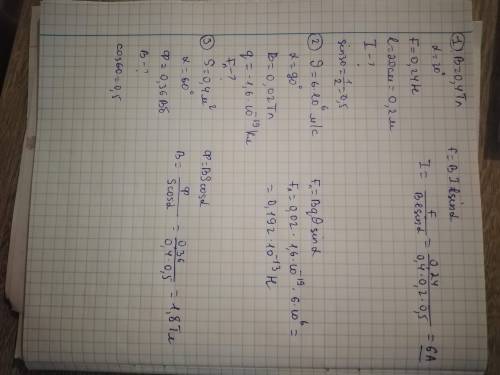 ① B=0,4Тл
α=30°
F=0,24Н
l=20см=0,2м
I-?
sin30=1/2=0,5
F=BIlsinα
I=F/Blsinα=0,24/0,4·0,2·0,5=6A
② ϑ=6·10⁶ м/с
α=90°
B=0,02Тл
q=-1,6·10⁻¹⁹Кл
Fл-?
Fл=Bqϑsinα
Fл=0,02·1,6·10⁻¹⁹·6·10⁶=
=0,192·10⁻¹³Н
③ S=0,4м²
α=60°
φ=0,36Вб
B-?
cos60=0,5
φ=BScosα
B=φ/Scosα=0,36/0,4·0,5=1,8Тл